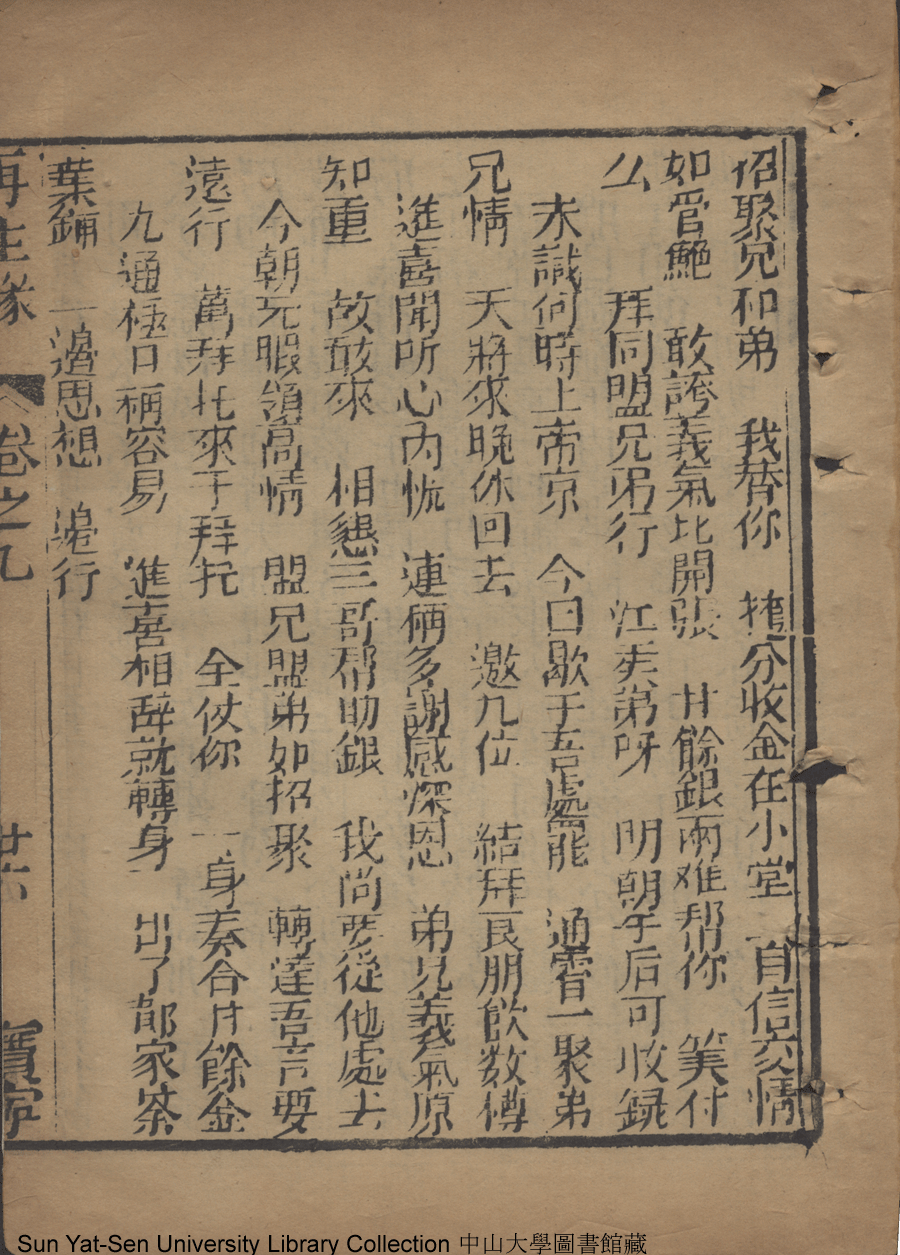 招聚兄和弟　我替你　攤分收金在小堂　自信交情
如管鮑　敢誇義氣比開張　廿餘銀兩难帮你　笑付
么　拜同盟兄弟行　江夹弟呀　明朝午后可收録
未識何時上帝京　今日歇于吾處罷　通霄一聚弟
兄情　天將來晚休回去　邀九位　結拜良朋飲数樽
進喜聞所心內忻　連称多謝感深恩　弟兄義氣原
知重　故敢來　相懇三哥帮助銀　我尚要從他處去
今朝无暇領高情　盟兄盟弟如招聚　轉達吾言要
遠行　萬拜托來千拜托　全仗你　一身奏合廿餘金
九通極口称容易　進喜相辞就轉身　出了郁家茶
葉鋪　一邉思想　邉行
再生緣　卷之九　廿六　寶寧
Sun Yat-Sen University Library Collection 中山大學圖書館藏